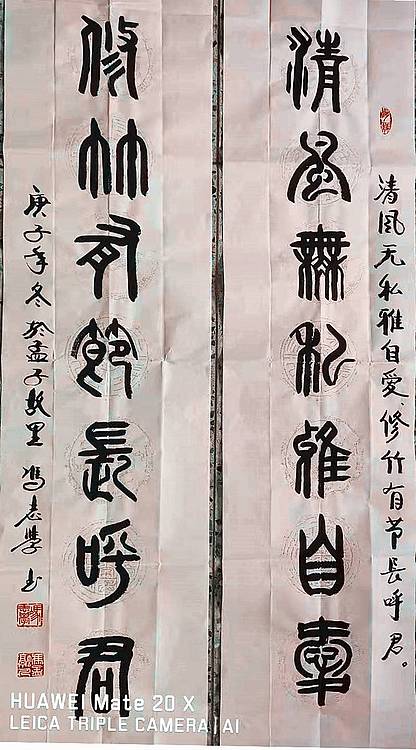 清风无私雅自爱修竹有节长呼君。
清風無私雅自愛
修竹有節長呼君
庚子年冬於孟子故里 馮志學书
HUAWEI Mate 20 X
LEICA TRIPLE CAMERA | AI